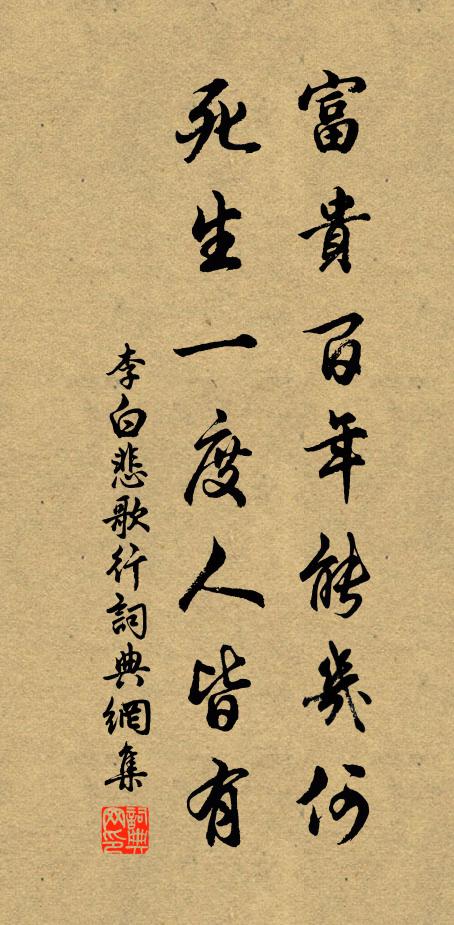 富貴百年能幾何
死生一度人皆有
李白悲歌行詞典網集
詞典
网印